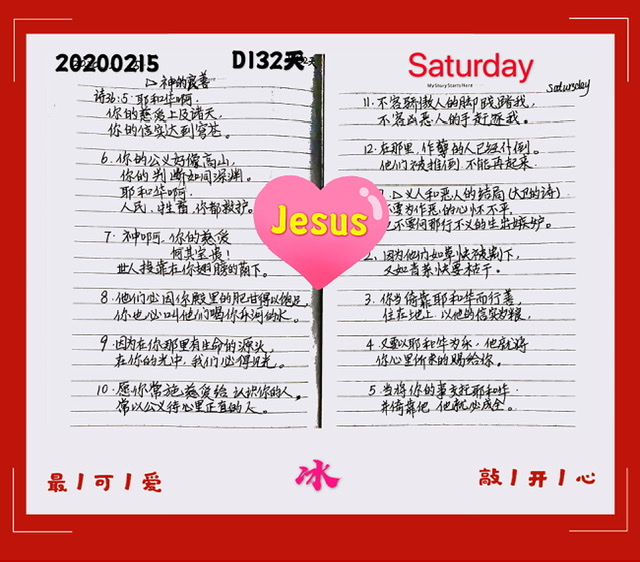 20200215
D132天
Saturday
My Story Starts Here
saturday
▷神的慈善
诗36:5.耶和华啊.
你的慈爱上及诸天,
你的信实达到穹苍。
6.你的公义好像高山,
你的判断如同深渊。
耶和华啊.
人民、牲畜,你都救护。
7.神啊,你的慈爱
何其宝贵!
世人投靠在你翅膀的荫下。
8.他们必因你殿里的肥甘得以饱足,
你也必叫他们喝你乐河的水。
9.因为在你那里有生命的源头,
在你的光中,我们必得见光。
10.愿你常施慈爱给认识你的人,
常以公义待心里正直的人。
11.不容骄傲人的脚践踏我,
不容凶恶人的手赶逐我。
12.在那里,作孽的人已经仆倒.
他们被推倒,不能再起来.
▷义人和恶人的结局(大卫的诗)
要为作恶的心怀不平,
不要向那行不义的生出嫉妒。
2.因为他们如草快被割下,
又如青菜快要枯干。
3.你当倚靠耶和华而行善,
住在地上,以他的信实为粮,
4.又要以耶和华为乐,他就将
你心里所求的赐给你。
5.当将你的事交托耶和华
并倚靠他,他就必成全。
Jesus
最丨可丨爱
冰
敲丨开丨心